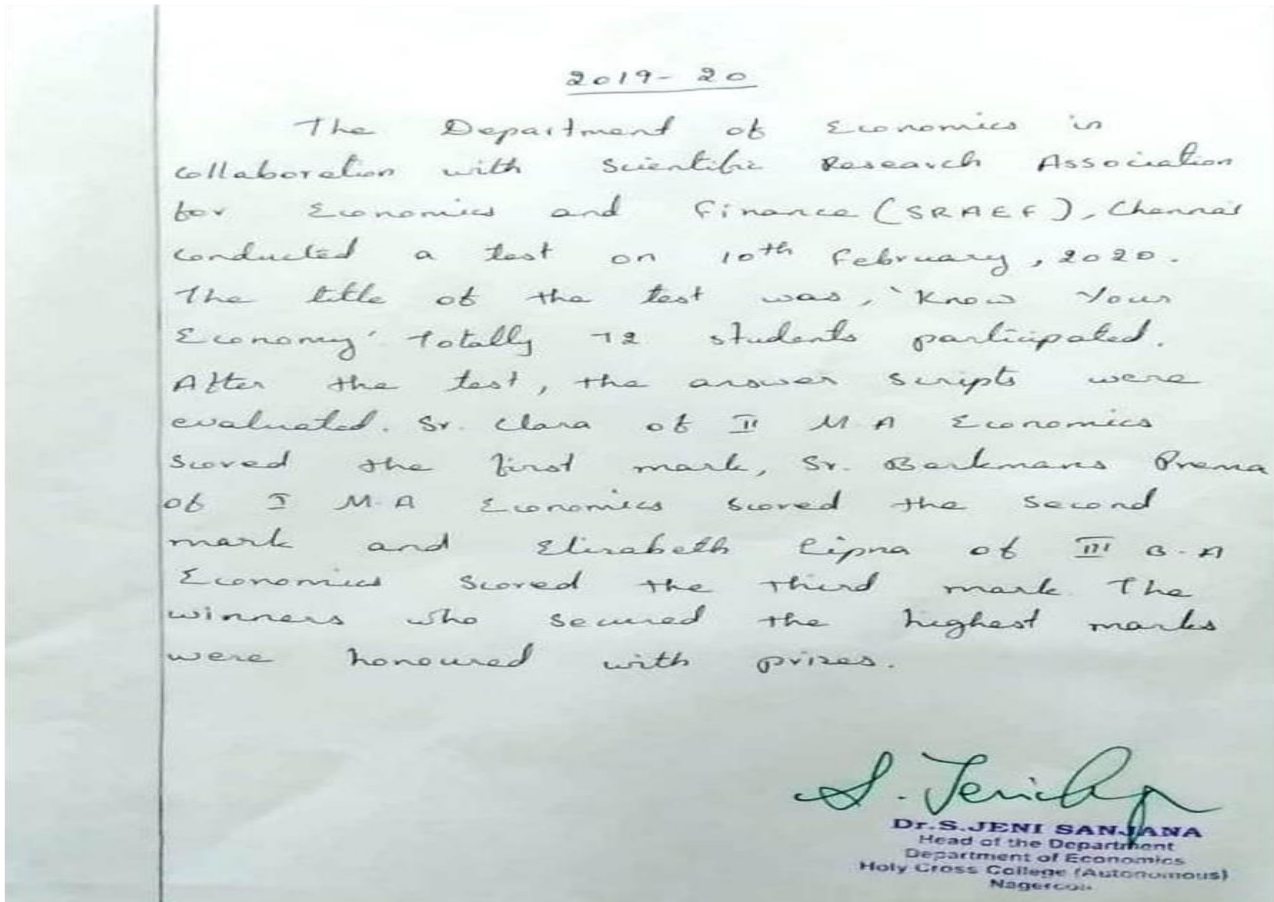 2019-20
The Department of Economics in
collaboration with Scientific Research Association
for Economics and Finance (SRAEF), Chennai
conducted a test on 10th February, 2020.
The title of the test was, 'Know Your
Economy' Totally 72 students participated.
After the test, the answer scripts were
evaluated. Sr. Clara of II M.A Economics
scored the first mark, Sr. Barkmans Prema
of I M.A Economics scored the second
mark and Elizabeth Lipna of III B.A
Economics scored the third mark. The
winners who secured the highest marks
were honoured with prizes.
S. Jeni
Dr.S.JENI SANJANA
Head of the Department
Department of Economics
Holy Cross College (Autonomous)
Nagercoil